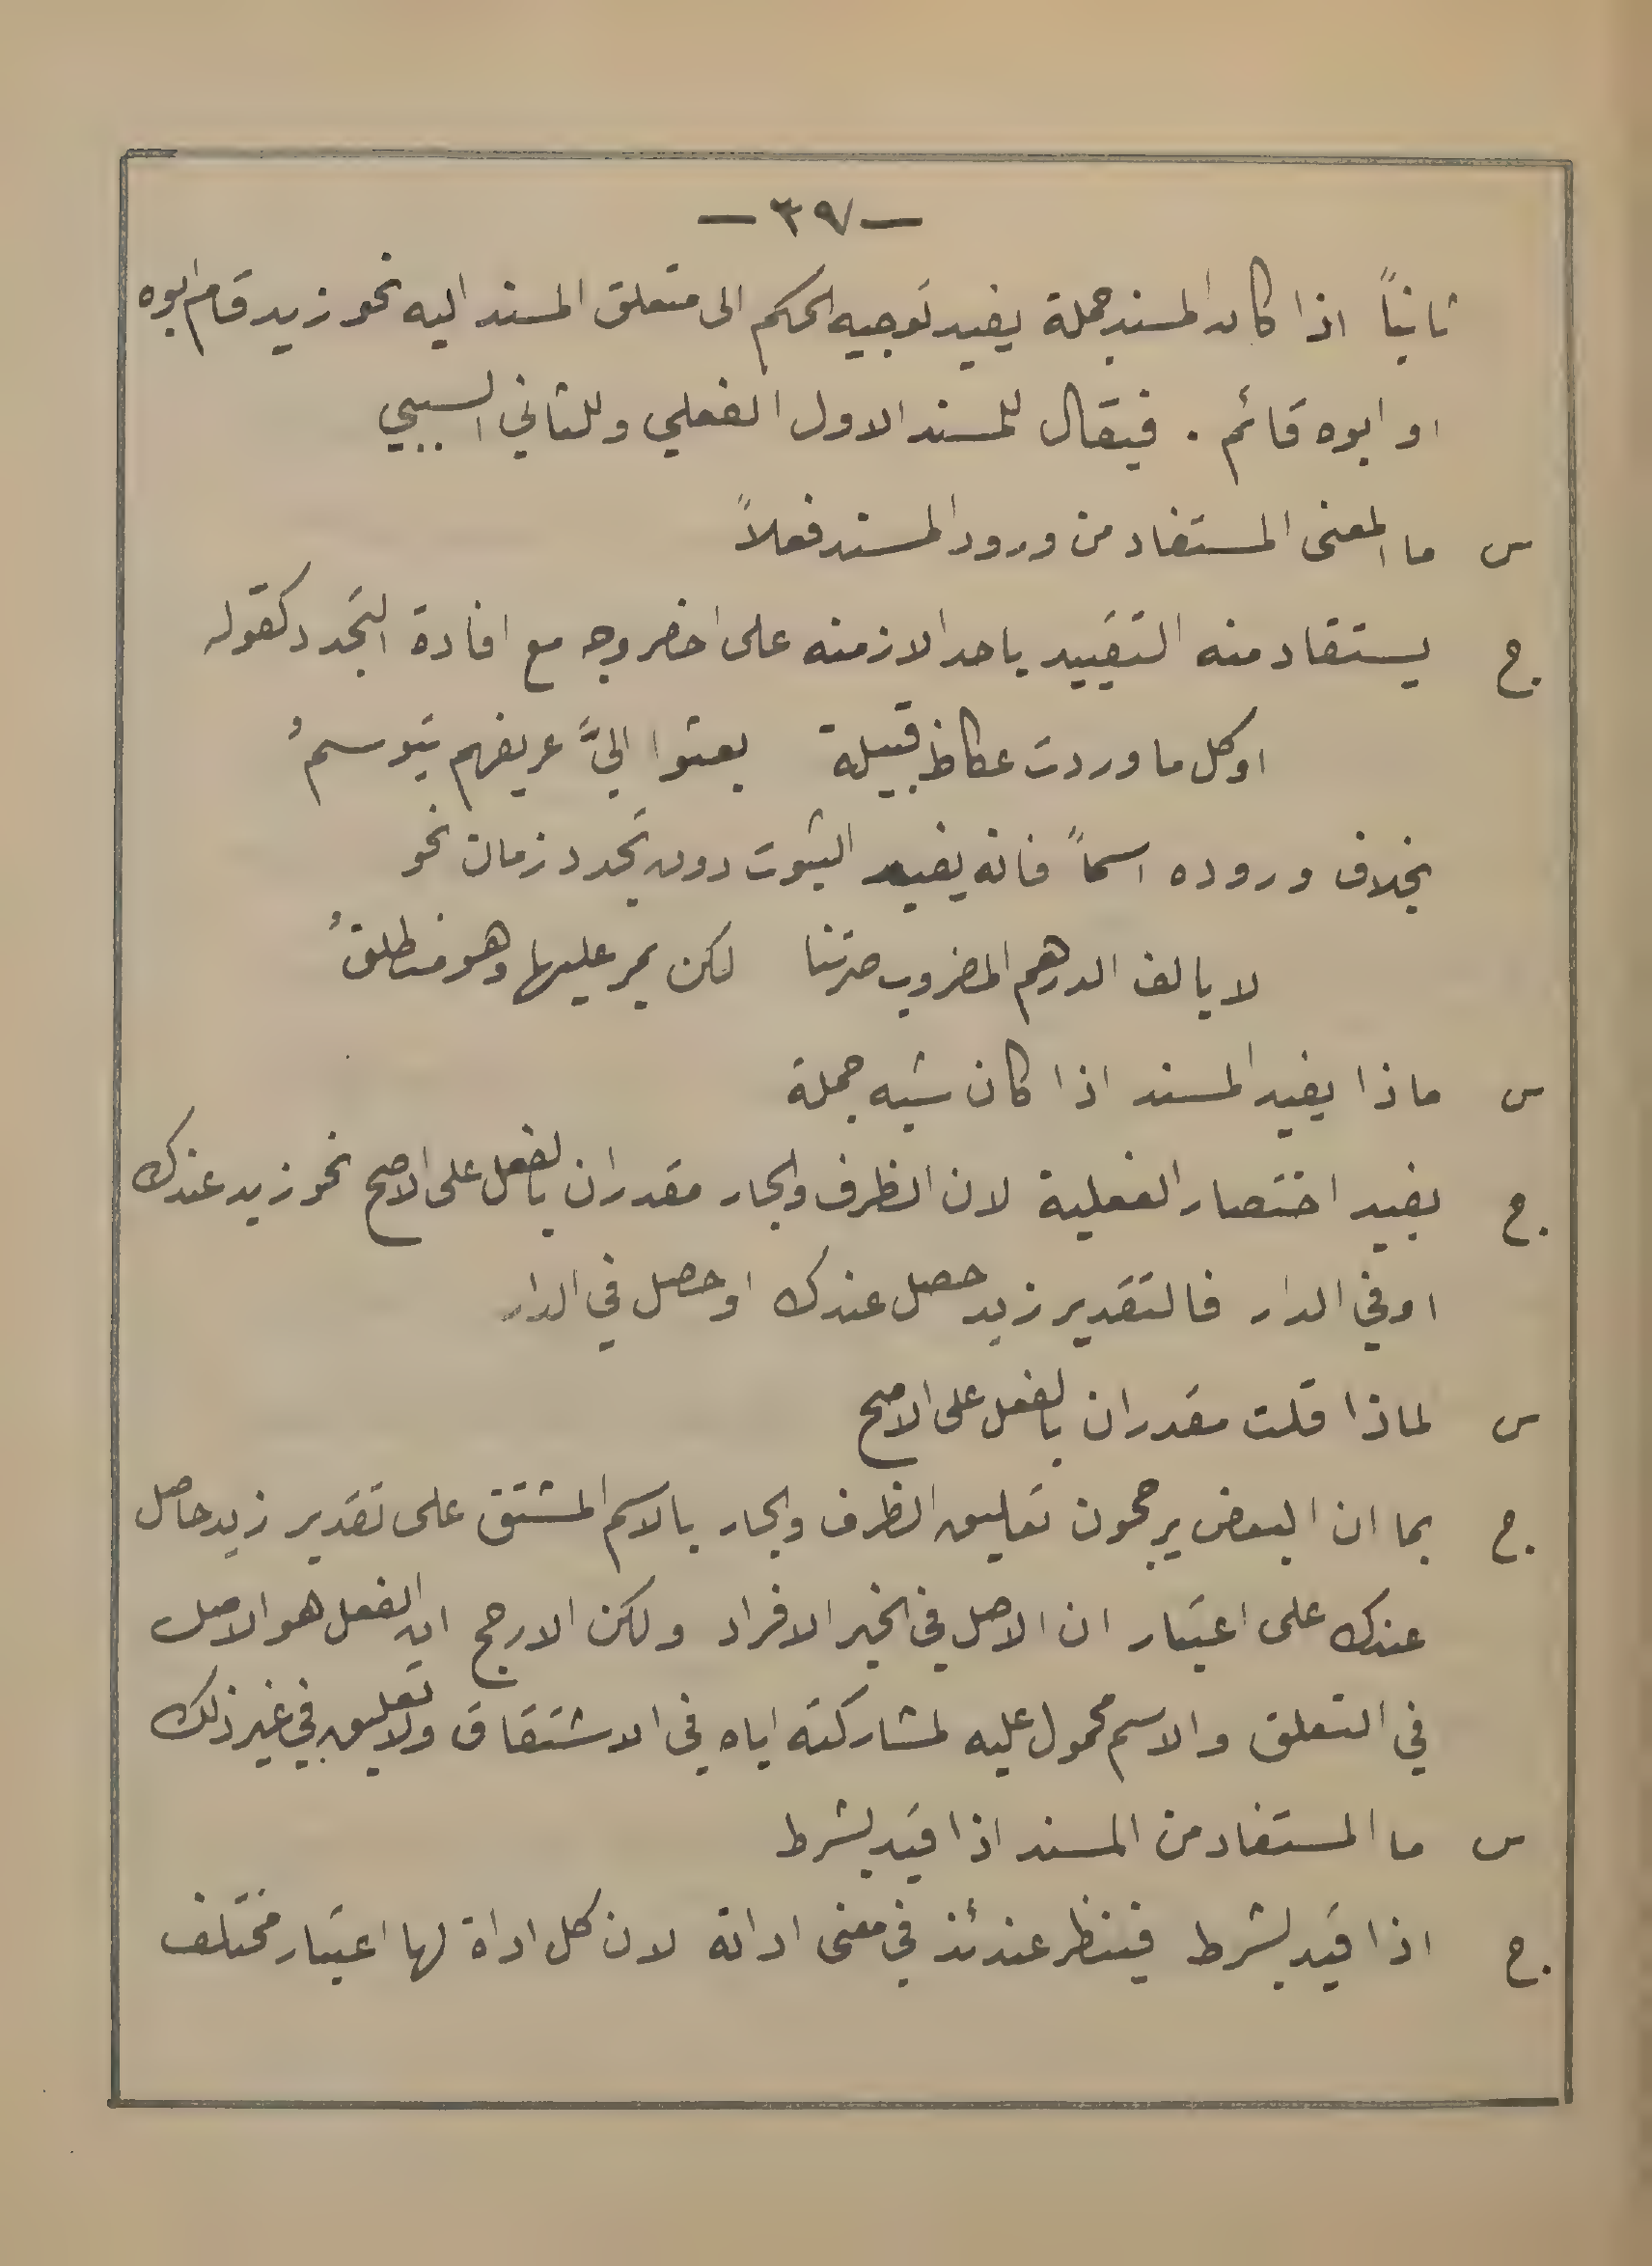 — ٣٩٧ —
ثانياً اذا كان المسند جملة يفيد توجيه الحكم الى متعلق المسند اليه نحو زيد قام ابوه
او ابوه قائم . فيقال للمسند الاول الفعلي وللثاني السببي
س ما المعنى المستفاد من ورود المسند فعلاً
ج. يستفاد منه التقييد باحد الازمنه على اخصر وجه مع افادة التجدد كقوله
او كل ما وردت عكاظ قبيلة بعثوا اليَّ عريفهم يتوسمُ
بخلاف وروده اسماً فانه يفيد الثبوت دون تجدد زمان نحو
لا يالف الدرهم المضروب صرتنا لكن يمر عليها وهو منطلقُ
س ماذا يفيد المسند اذا كان شبه جملة
ج. يفيد اختصار الفعلية لان الظرف والجار مقدران بالفعل على الاصح نحو زيد عندك
او في الدار فالتقدير زيد حصل عندك او حصل في الدار
س لماذا قلت مقدران بالفعل على الاصح
ج. بما ان البعض يرجحون تعليق الظرف والجار بالاسم المشتق على تقدير زيد حاصل
عندك على اعتبار ان الاصل في الخبر الافراد ولكن الارجح ان الفعل هو الاصل
في التعلق والاسم محمول عليه لمشاركته اياه في الاشتقاق ولا تعليق في غير ذلك
س ما المستفاد من المسند اذا قيد بشرط
ج. اذا قيد بشرط فينظر عندئذ في معنى اداته لان كل اداة لها اعتبار مختلف